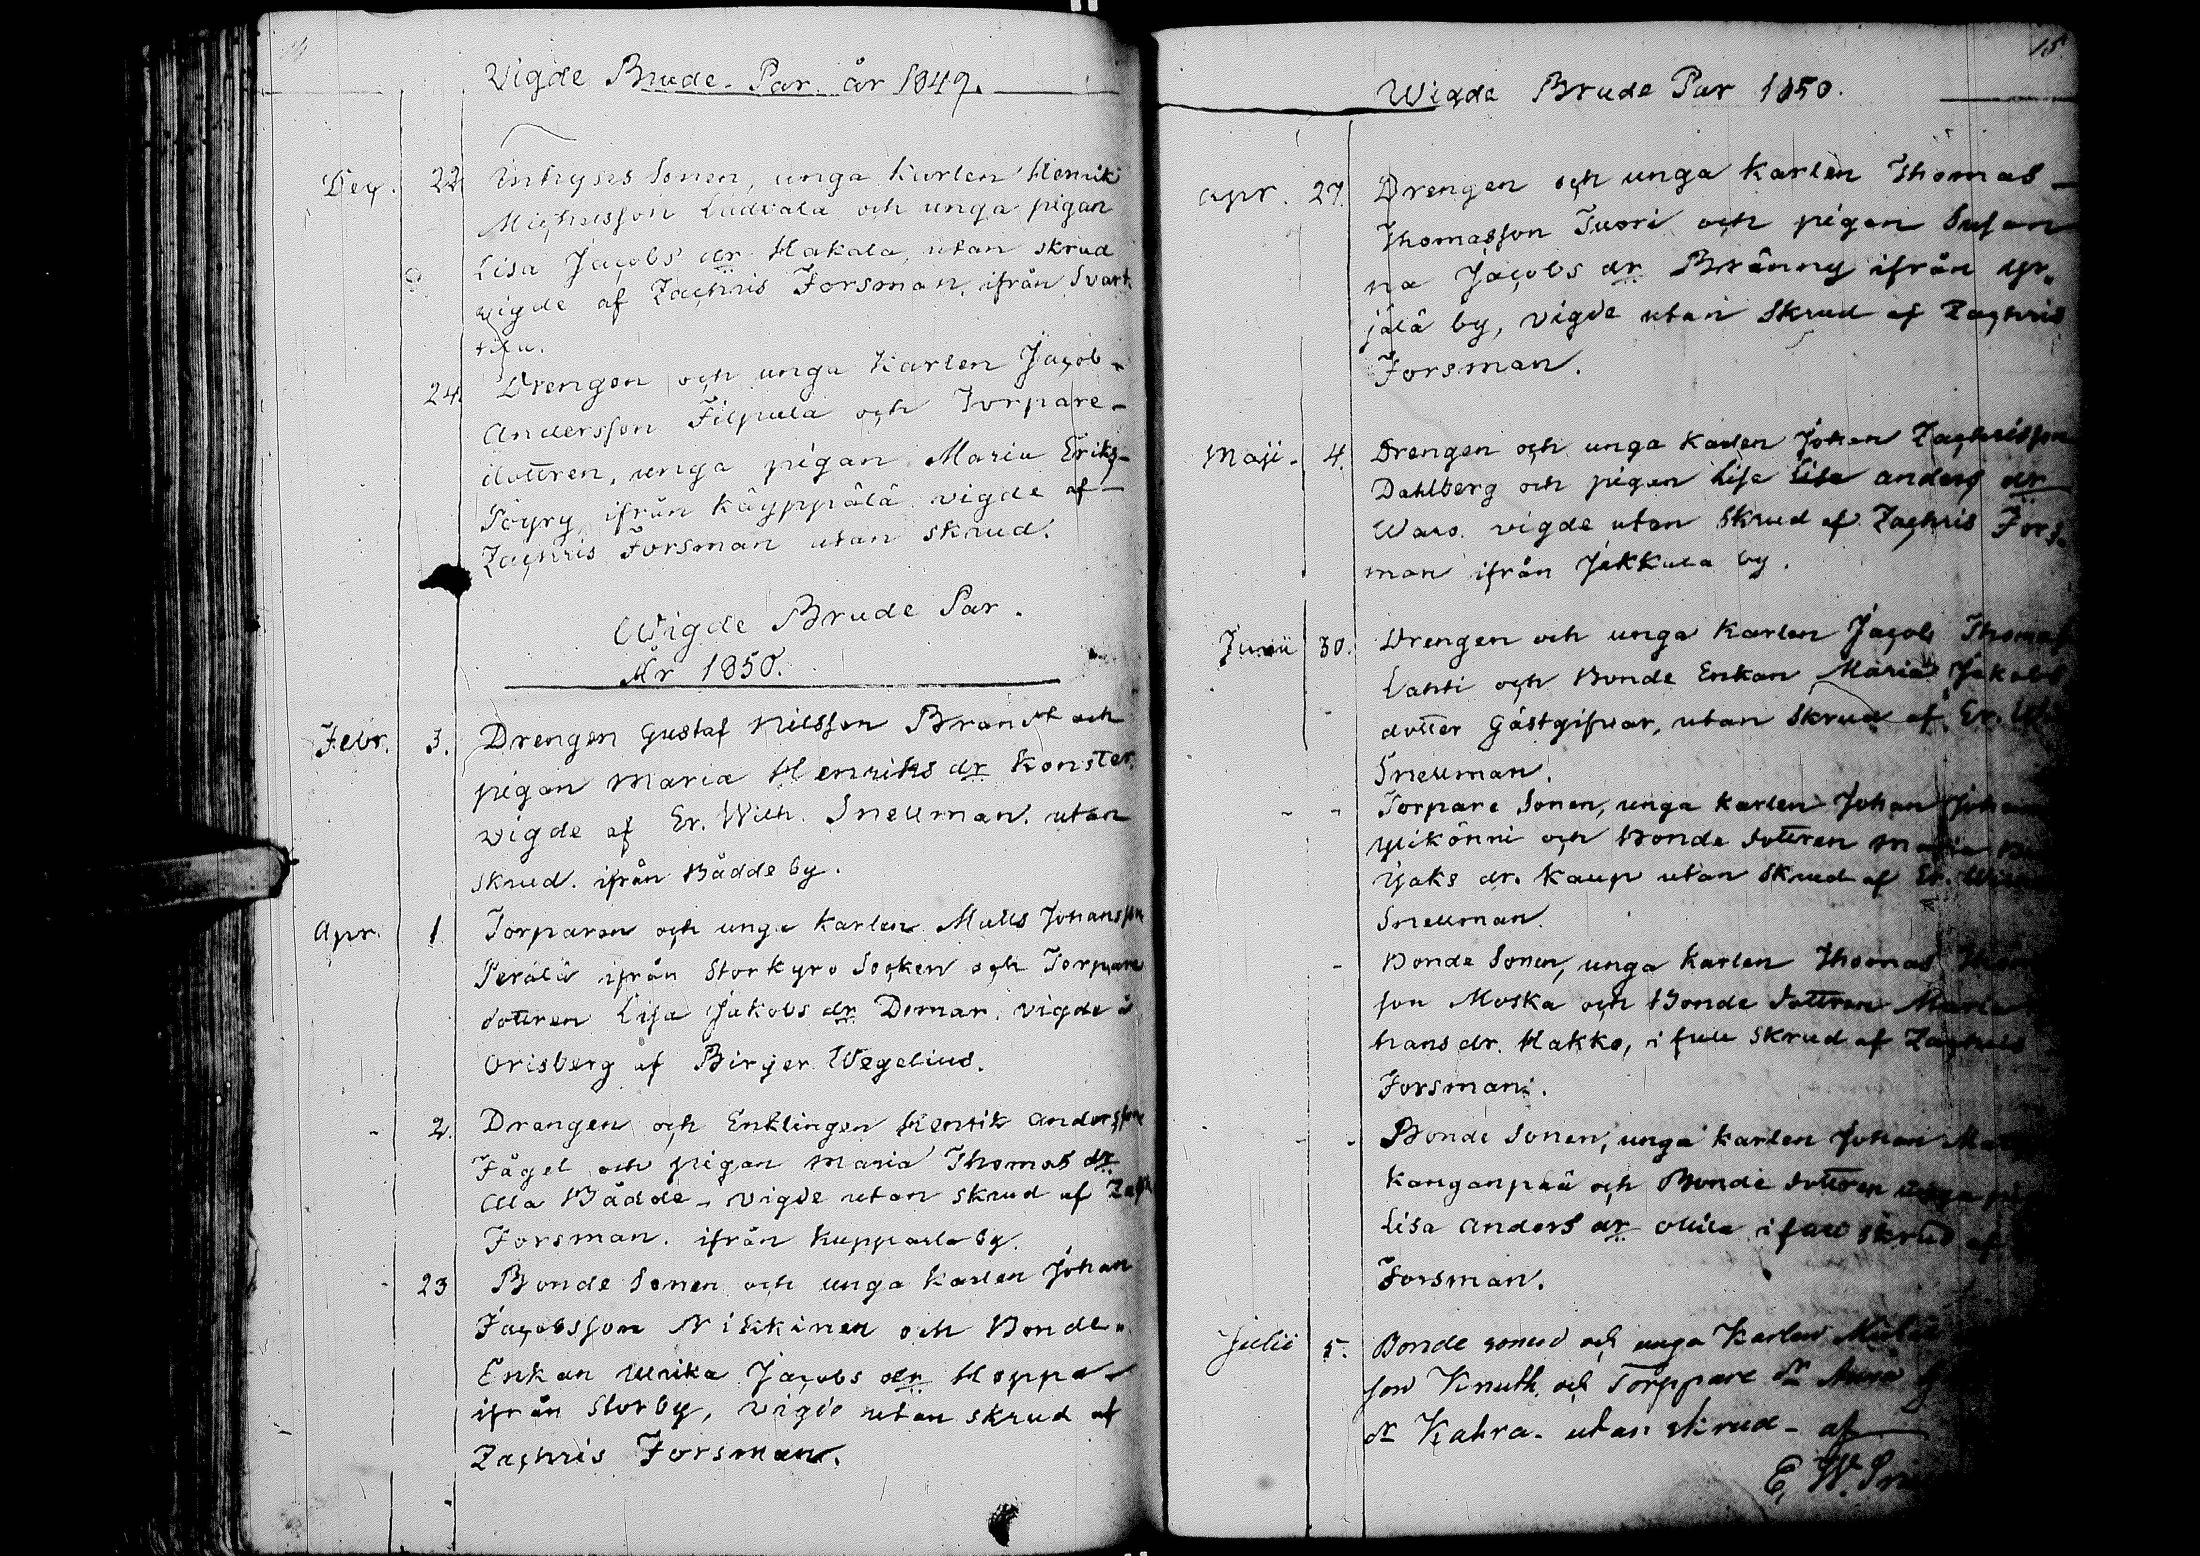 Vigde Brude-Par år 1849.
Dec. 22. Inhyses Sonen, unga Karlen Henrik
Michelsson Ladvala och unga pigan
Lisa Jacobs dr Hakala, utan skrud
vigde af Zachris Forsman, ifrån Svart
24. Drengen och unga Karlen Jacob
Andersson Filpula och Torpare-
dottren, unga pigan Maria Eriks-
Pöyry ifrån Käyppälä vigde af
Zachris Forsman utan skrud.
Wigde Brude Par.
År 1850.
Febr. 3. Drengen Gustaf Nilsson Brandt och
pigan Maria Henriks dr Konster
vigde af Er. Wilh. Snellman. utan
skrud. ifrån Bådde by.
Apr. 1. Torparen och unga Karlen Matts Johansson
Perälä ifrån Storkyro Socken och Torpare
dottren Lisa Jakobs dr Domar, vigde å
Orisberg af Birger Wegelius.
2. Drengen och Enklingen Henrik Andersson
Fågel och pigan Maria Thomas dr
Ala Bådde - vigde utan skrud af Zach
Forsman. ifrån Kuppala by.
23 Bonde Sonen och unga Karlen Johan
Jacobsson Niskinen och Bonde-
Enkan Ulrika Jacobs dr Hoppa
ifrån Storby, vigde utan skrud af
Zachris Forsman.
15.
Wigde Brude Par 1850.
Apr. 27. Drengen och unga Karlen Thomas
Thomasson Tuori och pigan Susan
na Jacobs dr Bränny ifrån Yr-
jälä by, vigde utan Skrud af Zachris
Forsman.
Maji. 4. Drengen och unga Karlen Johan Zachrisson
Dahlberg och pigan Lisa Lisa Anders dr
vigde utan Skrud af Zachris Fors-
man ifrån Jakkula by.
Junii 30. Drengen och unga Karlen Jacob Thomas
Lahti och Bonde Enkan Maria Jakobs
dotter Gästgifvar, utan Skrud af Er.
Snellman.
Torpare Sonen, unga Karlen Johan
Ylikönni och Bonde dottren
Isaks dr. Kaup utan Skrud af Er.
Snellman.
Bonde Sonen, unga Karlen Thomas Thom
son Moska och Bonde dottren Maria
hans dr. Hakko, i full Skrud af Zachris
Forsman.
Bonde Sonen, unga Karlen Johan Mat
Kanganpää och Bonde dottren unga
Lisa Anders dr Ollila i full skrud af
Forsman.
Julii 5. Bonde sonen och unga Karlen
son Knuth och Torppare dr
dr Kahra - utan skrud - af
E. W. Sn